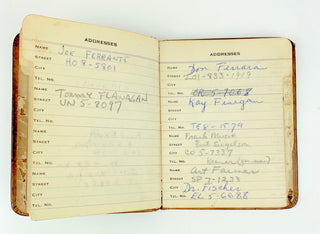 ADDRESSES
NAME JOE FERRANTE
STREET HO 8-5801
CITY
TEL. NO.
NAME TOMMY FLANAGAN
STREET UN 5-8097
CITY
TEL. NO.
NAME
STREET
CITY
TEL. NO.
NAME
STREET
CITY
TEL. NO.
ADDRESSES
NAME Don Ferrara
STREET 201-833-1919
CITY
TEL. NO.
NAME Kay Finegan
STREET
CITY
TEL. NO. TE8-1579
NAME Frank
STREET
CITY CO 5-7337
TEL. NO.
NAME Art Farmer
STREET SP 7-1233
CITY Dr. Fischer
TEL. NO. EL 5-6688